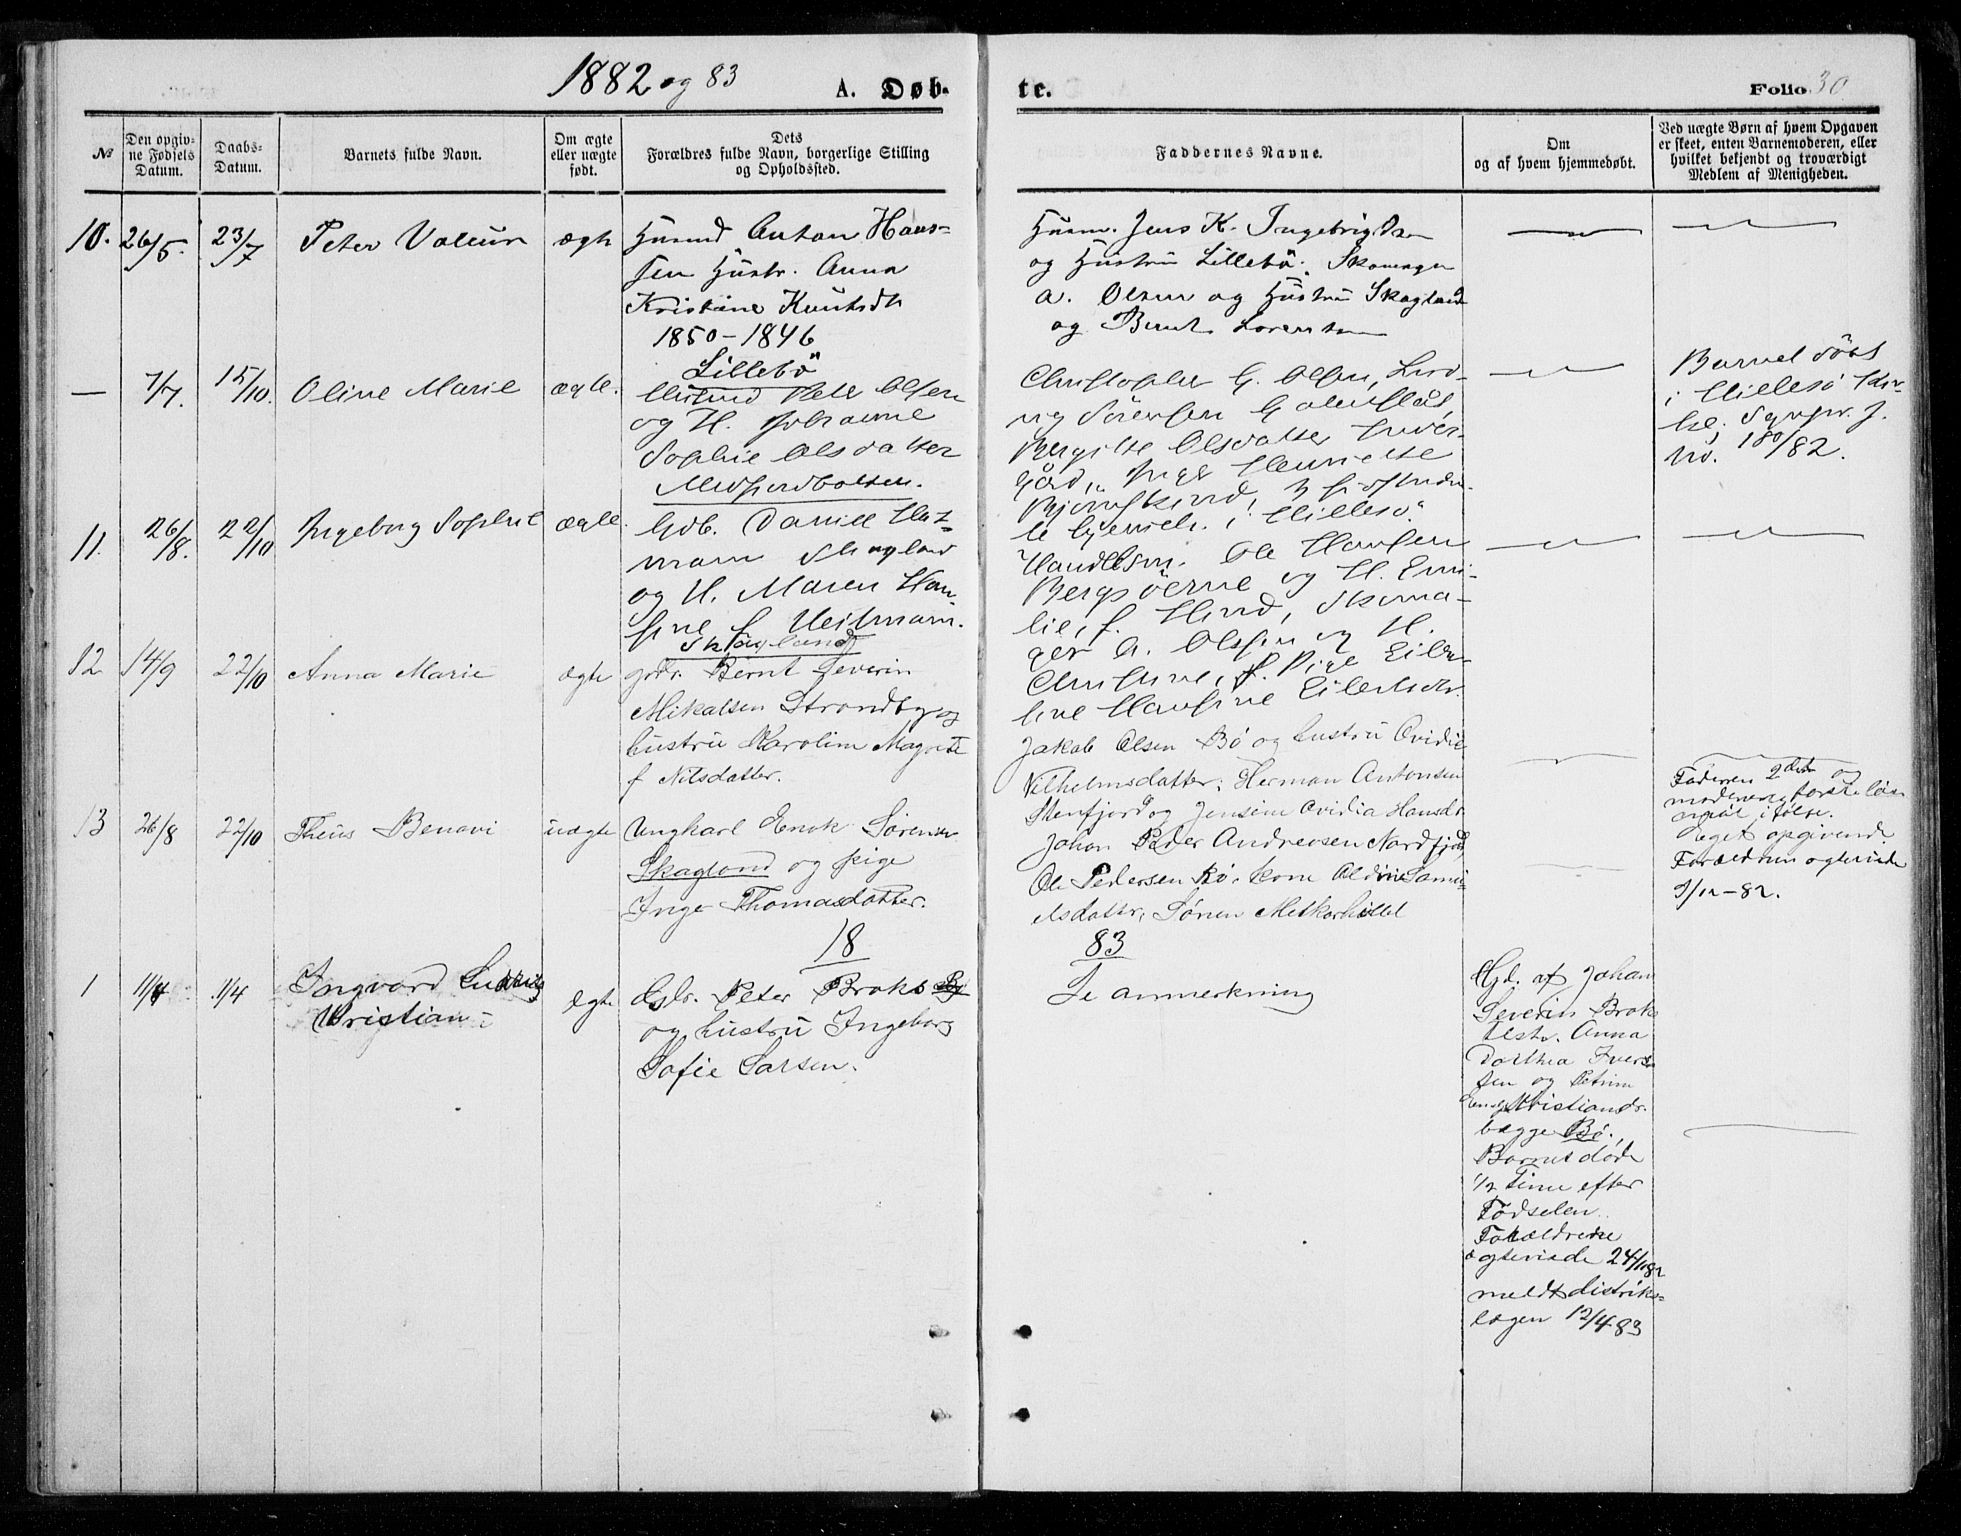 1882 og 83
A. Døb-
te.
Folio 30
№
Den opgiv-
ne Fødsels
Datum.
Daabs-
Datum.
Barnets fulde Navn.
Om ægte
eller uægte
født.
Dets
Forældres fulde Navn, borgerlige Stilling
og Opholdssted.
Faddernes Navne.
Om
og af hvem hjemmedøbt.
Ved uægte Børn af hvem Opgaven
er skeet, enten Barnemoderen, eller
hvilket bekjendt og troværdigt
Medlem af Menigheden.
10.
26/5.
23/7
Peter
ægte
Husmd Anton Hans-
sen Hustr. Anna
Kristine Knutsdt
1850-1846
Lillebö
Husm. Jens K. Ingebrigtsen
og Hustru Lillebö.
A. Olsen og Hustru Skagland
og Bernt Lorentsen
—
7/7.
15/10.
Oline Marie
ægte.
Husmd Peter Olsen
og H. Johanne
Sophie Olsdatter
Medfjordbotten.
Christopher G. Olsen, Lud-
vig Sörensen
Bergitte Olsdatter Inder-
gård, Pige Henriette
i Hillesö.
Barnet döbt
i Hillesö Kir-
ke.
No. 180/82.
11.
26/8.
22/10
Ingeborg Sophie
ægte.
Gdb. Daniel Heit-
mann Skagland
og H. Maren Han-
sine f. Heitmann.
Skagland
Handelsm. Ole Hansen
Bergsöerne og H. Emi-
lie, f. Hind, Skoma-
ger A. Olsen og H.
Christine, f. Pige Eilen-
sine Hansine Eilertsdtr.
12
14/9
22/10
Anna Marie
ægte
gdbr. Bernt Severin
Mikalsen Strandby og
hustru Karoline Magrete
f Nilsdatter.
Jakob Olsen Bö og hustru Ovidie
Vilhelmsdatter. Herman Antonsen
Stenfjord og Jensine Ovidia Hansdr
13
26/8
22/10
Theus Benavi
uægte
Ungkarl Enok Sörensen
Skagland og pige
Inge Thomasdatter.
Johan Peder Andreasen Nordfjord
Ole Pedersen Bö. kone Aldine Samu-
elsdatter, Sören
Faderen 2det og
moderens förste leier-
maal i fölge
Eget opgivende
Forældrene ægteviede
9/12-82.
18
83
1
1/4
1/4
Ingvard Ludvig
Kristian
ægte
Gbr. Peter Broks Bö
og hustru Ingeborg
Sofie Larsen.
Se anmerkning
Hjd. af Johan
Severin Broks
hstr. Anna
Dorthea Iver-
sen og Petrine
Kristiansdr.
begge Bö.
Barnet döde
1/2 Time efter
Fødselen.
Forældrene
ægteviede 24/1082
meldt distrikts-
lægen 12/4 83